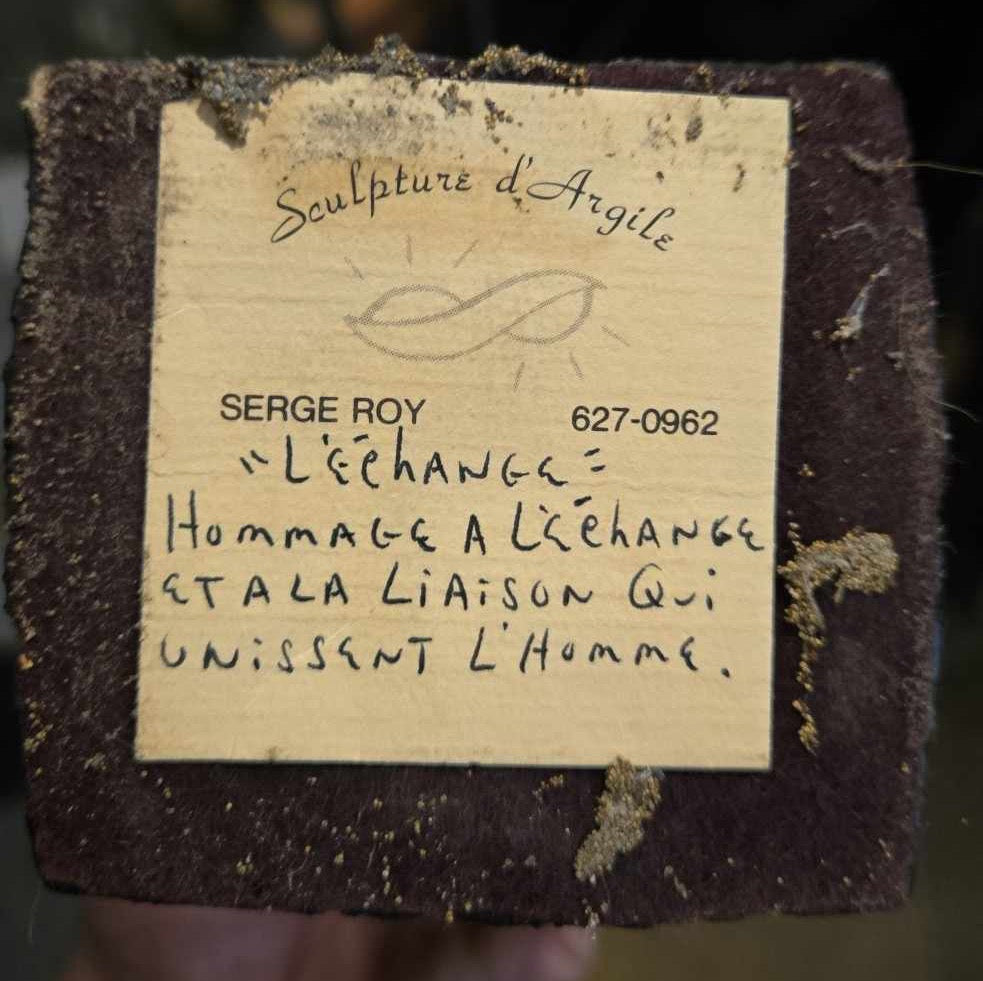 Sculpture d'Argile
SERGE ROY 627-0962
"L'ÉChANGE"
HommAGE A L'ÉChANGE
ET A LA LiAiSON Qui
UNiSSENT L'HommE.